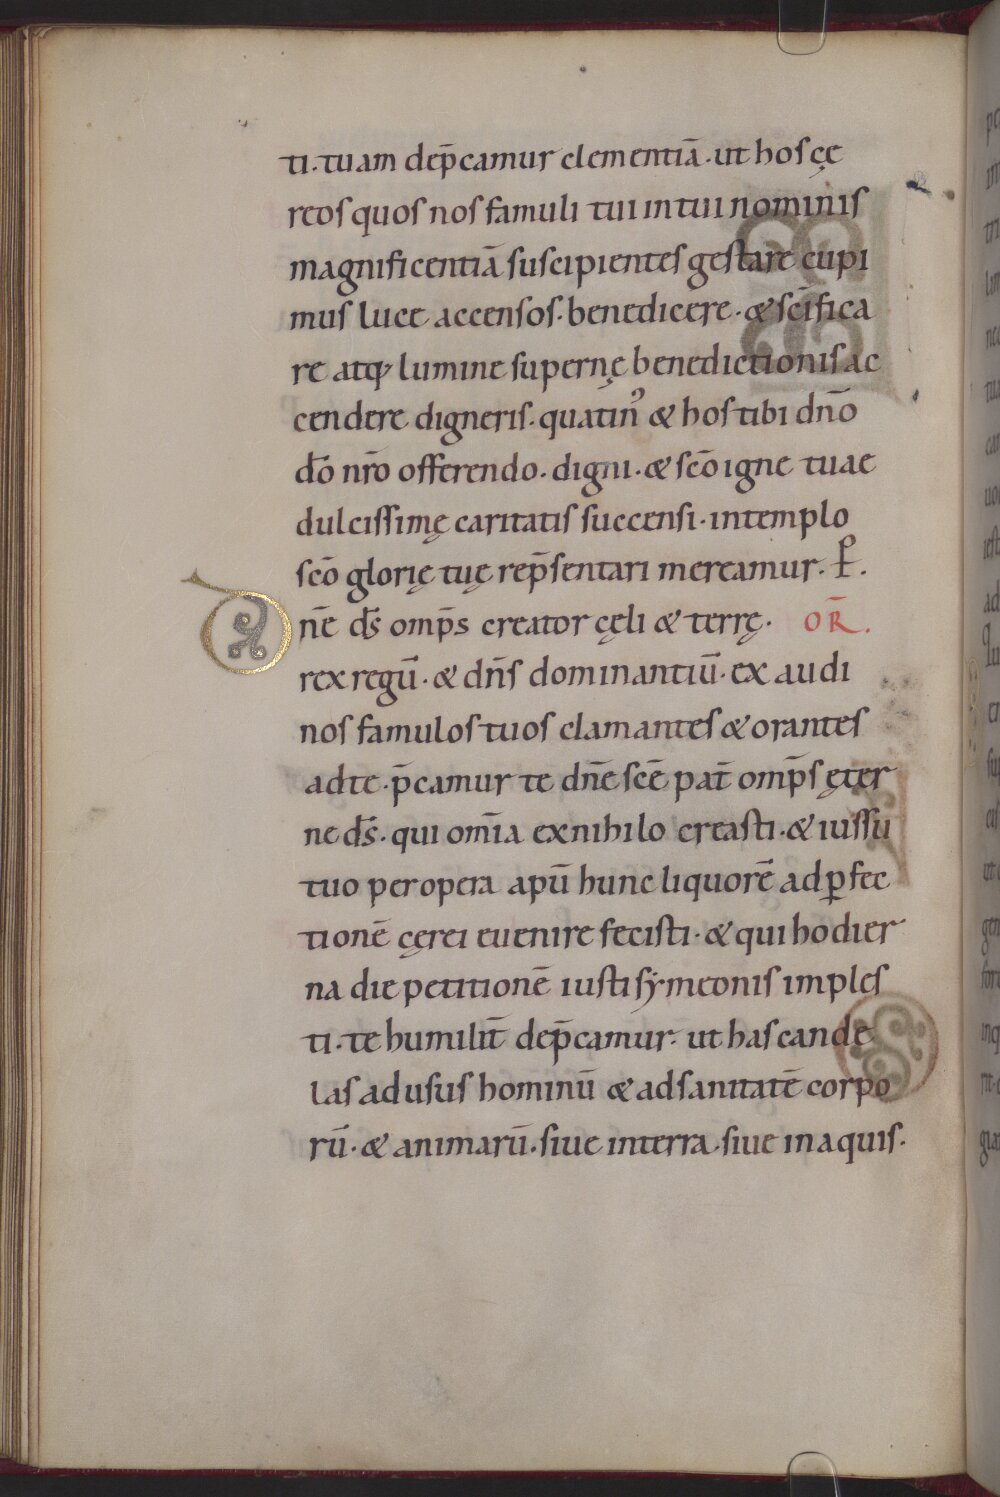 ti. tuam dep̄camur clementiā. ut hos cę
reos quos nos famuli tui in tui nominis
magnificentiā suscipientes gestare cupi
mus luce accensos. benedicere. & sc̄ifica
re atq; lumine supernę benedictionis ac
cendere digneris. quatin᾿ & hos tibi dn̄o
dō nr̄o offerendo. digni. & sc̄o igne tuae
dulcissimę caritatis succensi. in templo
sc̄o glorię tuę rep̄sentari mereamur. P̱.
Dn̄e ds̄ omp̄s creator cęli & terrę. OR̄.
rex regū. & dn̄s dominantiū. exaudi
nos famulos tuos clamantes & orantes
ad te. p̄camur te dn̄e sc̄e pat̄ omp̄s ęter
ne ds̄. qui om̄ia ex nihilo creasti. & iussu
tuo per opera apū hunc liquorē ad ꝑfec
tionē cęrei evenire fecisti. & qui hodier
na die petitionē iusti symeonis imples
ti. te humilit̄ dep̄camur. ut has cande
las ad usus hominū & ad sanitatē corpo
rū. & animarū. sive in terra. sive in aquis.